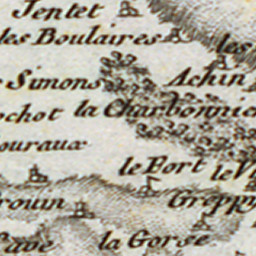 Jentet
les Boulaires les
Simons Achin
ochot la Charbonnie
ouraux
le Fort le V
rouin Greppy
Cave la Gorse